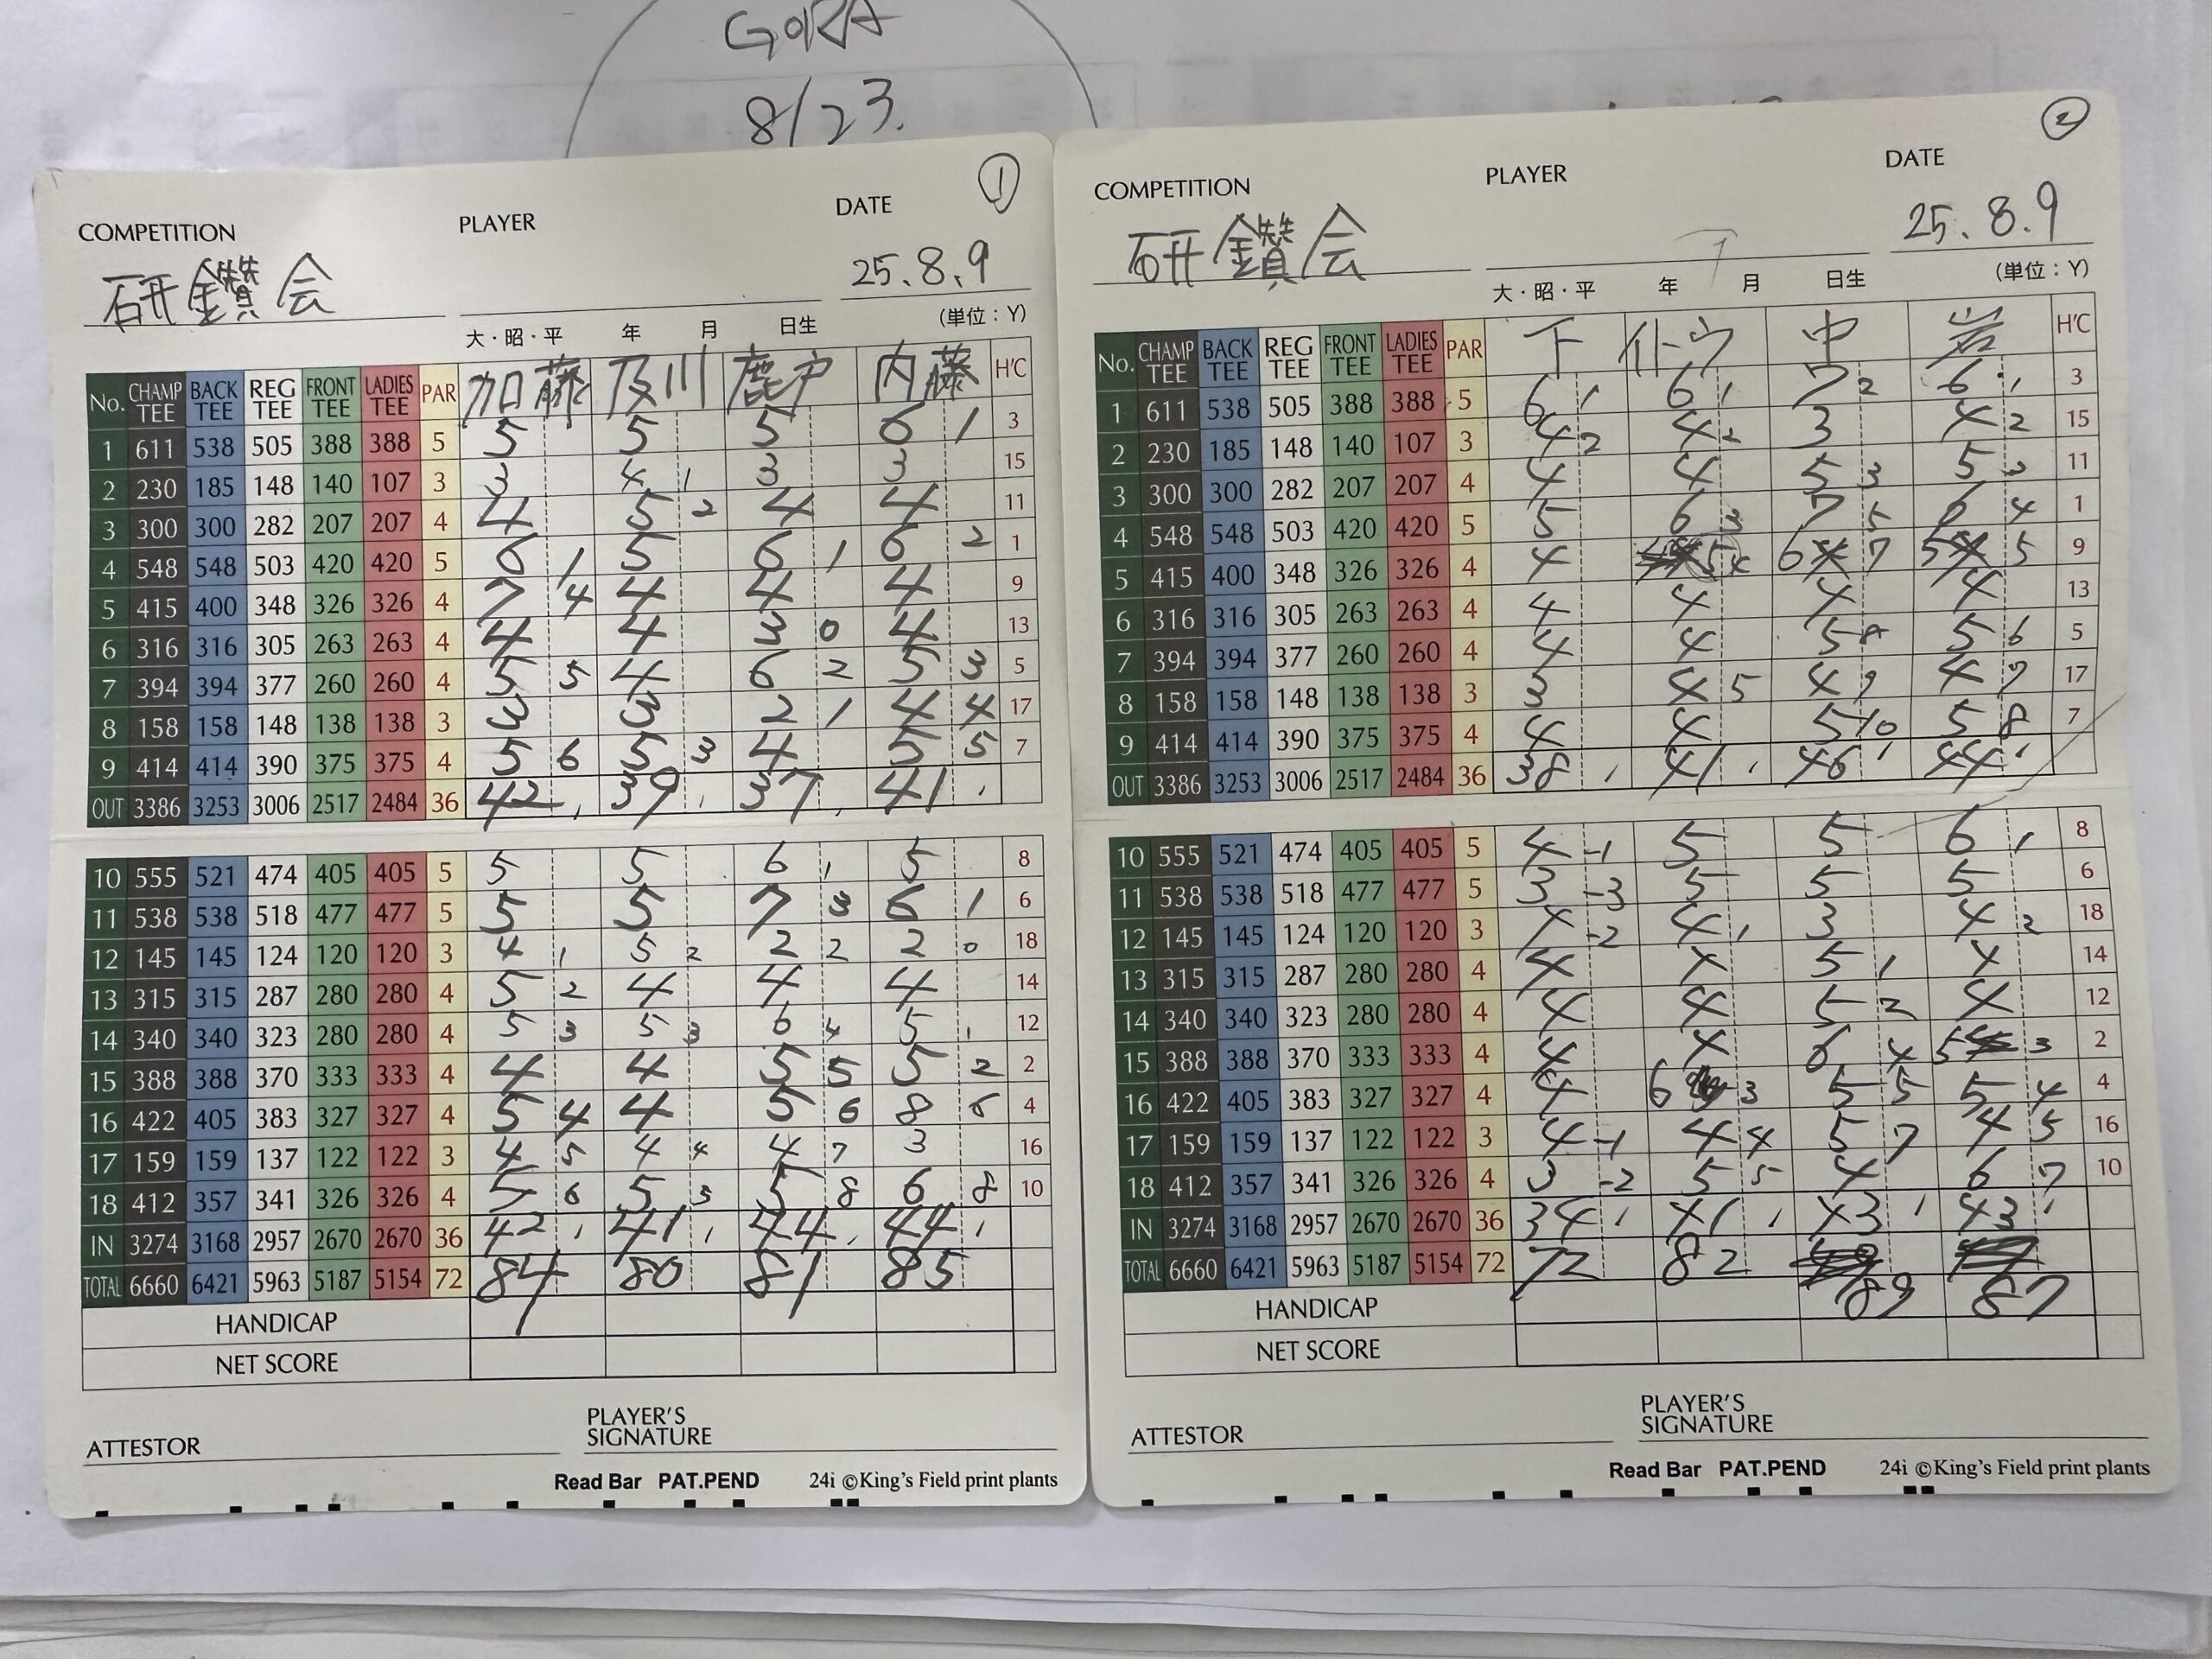 GORA
8/23.
①
COMPETITION PLAYER DATE
研鑽会 25.8.9
大・昭・平 年 月 日生 (単位：Y)
No. CHAMP TEE BACK TEE REG TEE FRONT TEE LADIES TEE PAR 加藤 及川 鹿戸 内藤 H'C
1 611 538 505 388 388 5 5 5 5 6 1 3
2 230 185 148 140 107 3 3 4 1 3 3 15
3 300 300 282 207 207 4 4 5 2 4 4 11
4 548 548 503 420 420 5 6 1 5 6 1 6 2 1
5 415 400 348 326 326 4 7 4 4 4 4 9
6 316 316 305 263 263 4 4 4 3 0 4 13
7 394 394 377 260 260 4 5 5 4 6 2 5 3 5
8 158 158 148 138 138 3 3 3 2 1 4 4 17
9 414 414 390 375 375 4 5 6 5 3 4 5 5 7
OUT 3386 3253 3006 2517 2484 36 42 39 37 41
10 555 521 474 405 405 5 5 5 6 1 5 8
11 538 538 518 477 477 5 5 5 7 3 6 1 6
12 145 145 124 120 120 3 4 1 5 2 2 2 2 0 18
13 315 315 287 280 280 4 5 2 4 4 4 14
14 340 340 323 280 280 4 5 3 5 3 6 4 5 1 12
15 388 388 370 333 333 4 4 4 5 5 5 2 2
16 422 405 383 327 327 4 5 4 4 5 6 8 6 4
17 159 159 137 122 122 3 4 5 4 4 4 7 3 16
18 412 357 341 326 326 4 5 6 5 5 5 8 6 8 10
IN 3274 3168 2957 2670 2670 36 42 41 44 44
TOTAL 6660 6421 5963 5187 5154 72 84 80 81 85
HANDICAP
NET SCORE
ATTESTOR PLAYER'S SIGNATURE
Read Bar PAT.PEND 24i ©King's Field print plants
②
COMPETITION PLAYER DATE
研鑽会 25.8.9
大・昭・平 年 月 日生 (単位：Y)
No. CHAMP TEE BACK TEE REG TEE FRONT TEE LADIES TEE PAR 下 中 岩 H'C
1 611 538 505 388 388 5 6 1 6 1 7 2 6 1 3
2 230 185 148 140 107 3 4 2 4 2 3 4 2 15
3 300 300 282 207 207 4 4 4 5 3 5 3 11
4 548 548 503 420 420 5 5 6 3 7 5 6 4 1
5 415 400 348 326 326 4 4 5 4 6 7 5 5 9
6 316 316 305 263 263 4 4 4 4 4 13
7 394 394 377 260 260 4 4 4 5 8 5 6 5
8 158 158 148 138 138 3 3 4 5 4 9 4 7 17
9 414 414 390 375 375 4 4 4 5 10 5 8 7
OUT 3386 3253 3006 2517 2484 36 38 41 46 44
10 555 521 474 405 405 5 4 -1 5 5 6 1 8
11 538 538 518 477 477 5 3 -3 5 5 5 6
12 145 145 124 120 120 3 4 -2 4 1 3 4 2 18
13 315 315 287 280 280 4 4 4 5 1 4 14
14 340 340 323 280 280 4 4 4 5 2 4 12
15 388 388 370 333 333 4 4 4 6 4 5 3 2
16 422 405 383 327 327 4 4 6 3 5 5 5 4 4
17 159 159 137 122 122 3 4 -1 4 4 5 7 4 5 16
18 412 357 341 326 326 4 3 -2 5 5 4 6 7 10
IN 3274 3168 2957 2670 2670 36 34 41 43 43
TOTAL 6660 6421 5963 5187 5154 72 72 82
HANDICAP 89 87
NET SCORE
ATTESTOR PLAYER'S SIGNATURE
Read Bar PAT.PEND 24i ©King's Field print plants